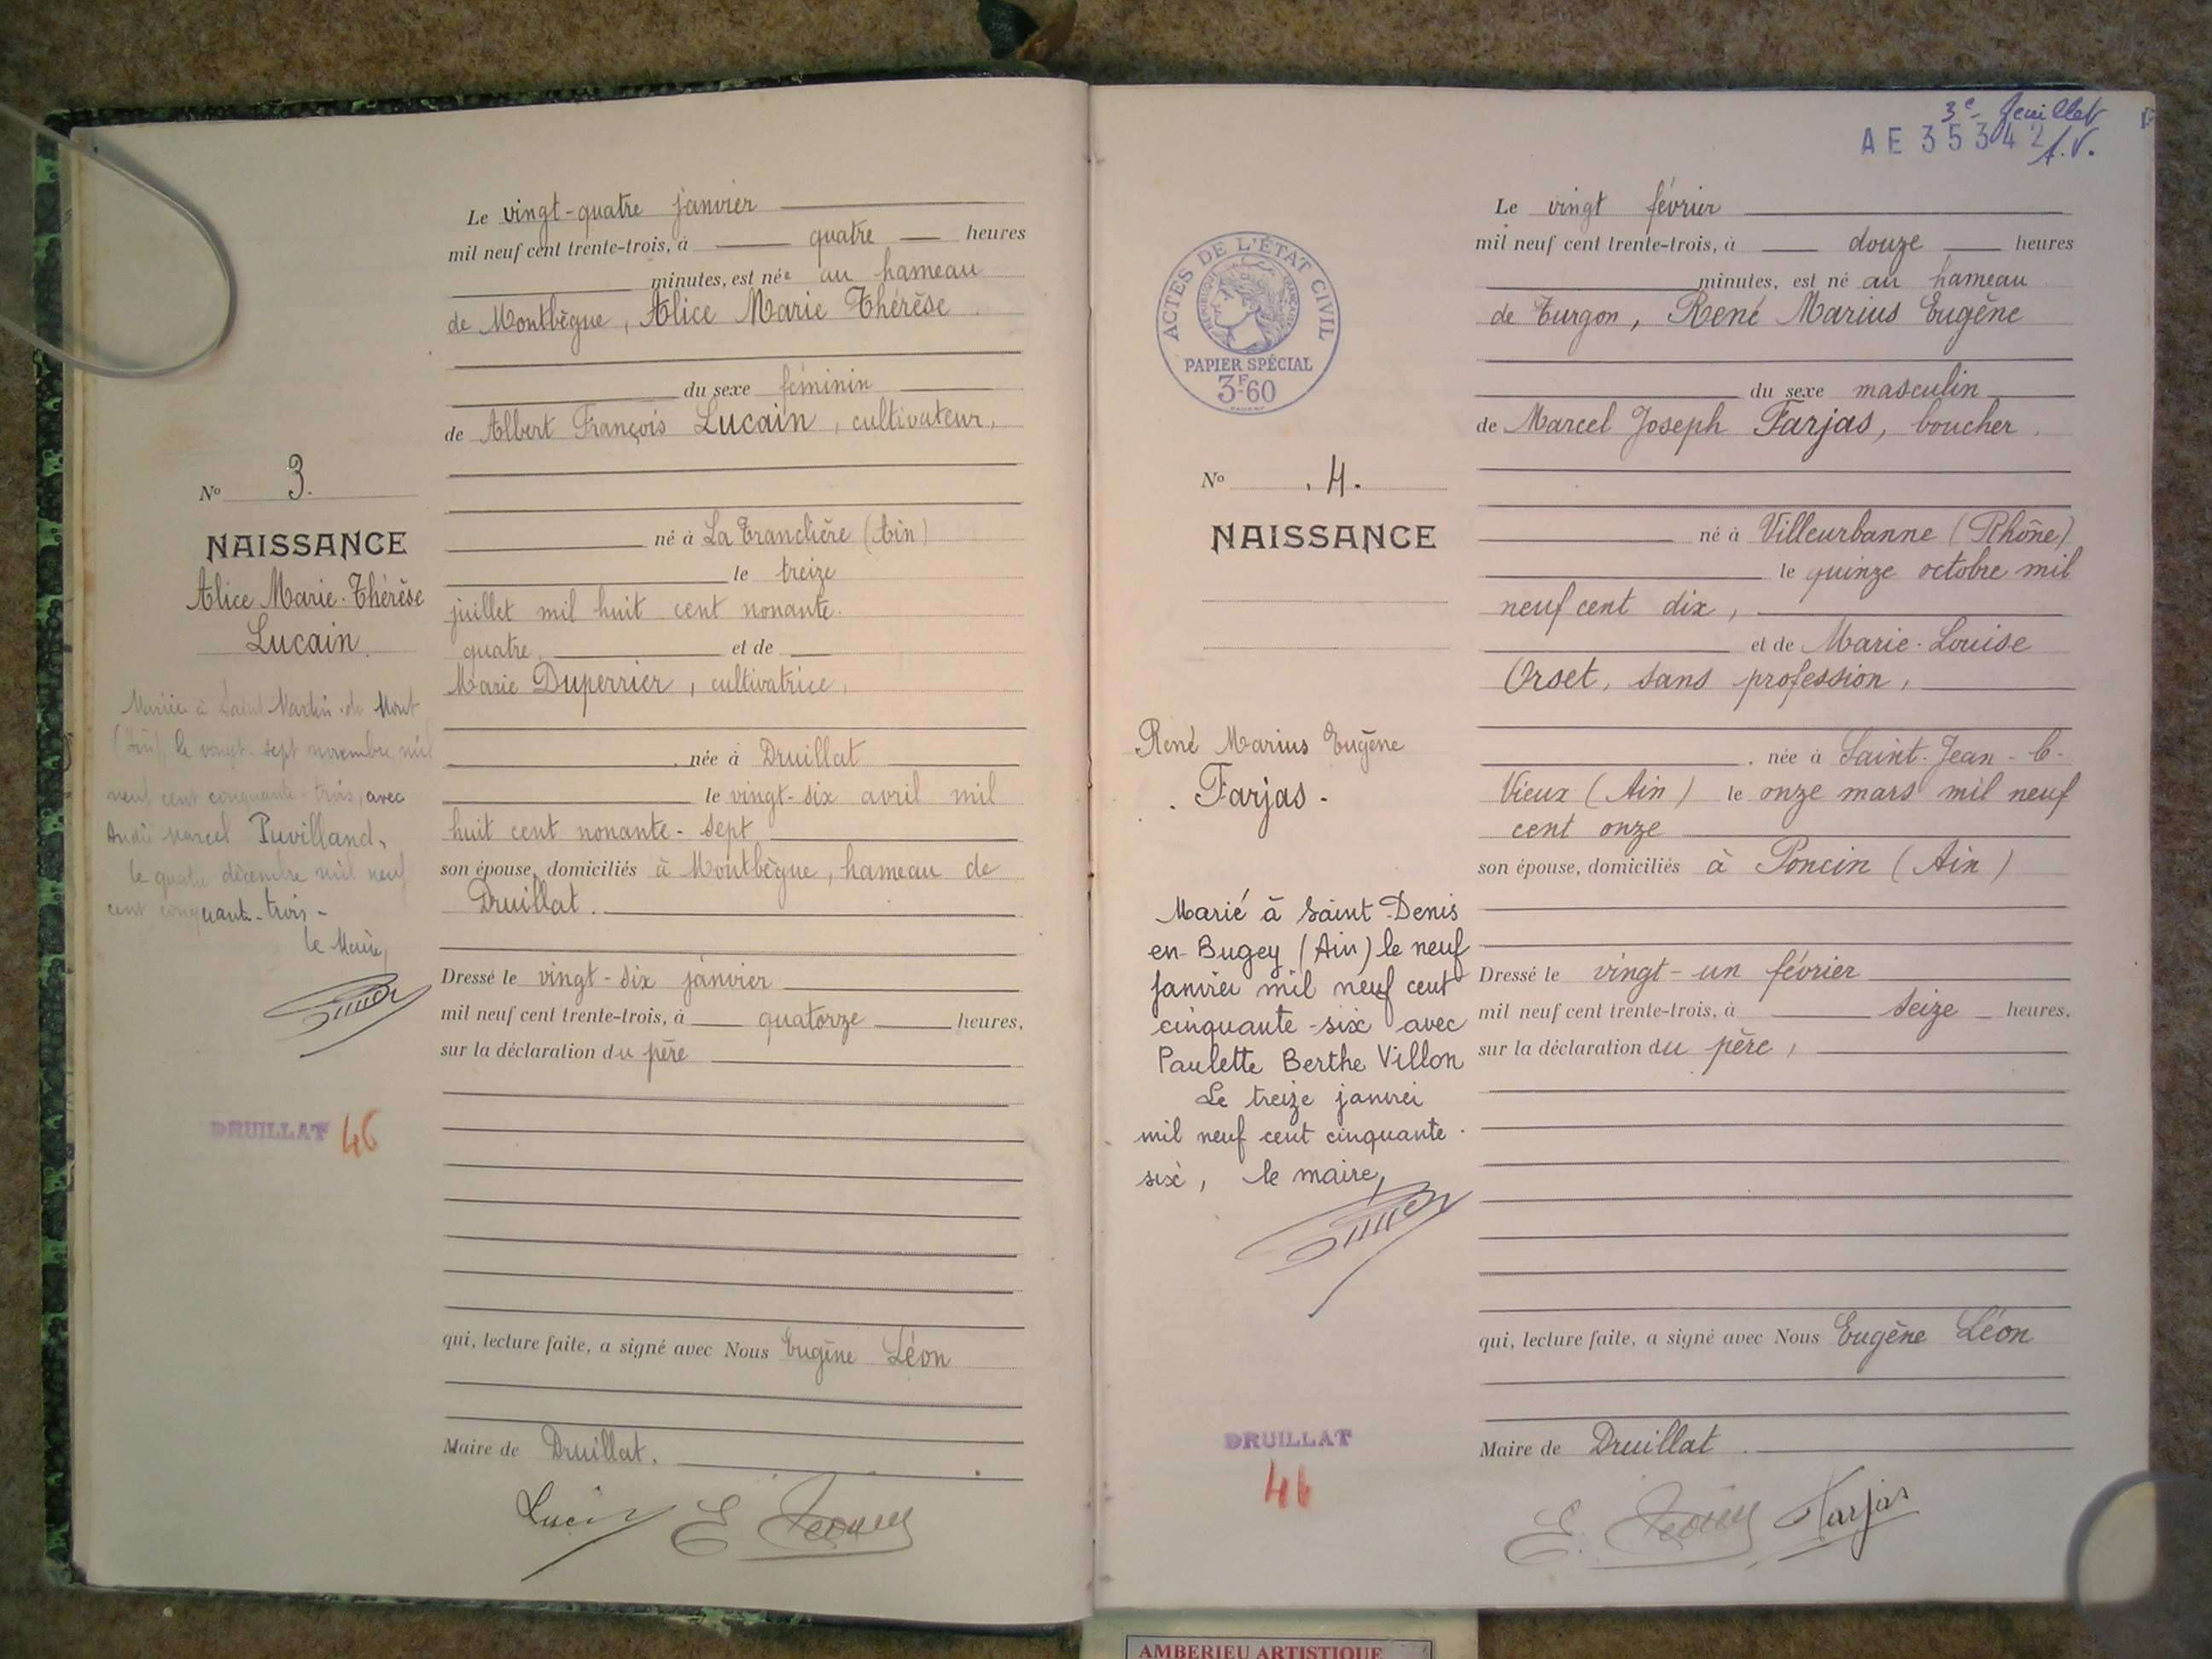 Le vingt-quatre janvier
mil neuf cent trente-trois, à quatre heures
minutes, est née au hameau
de Montbègue, Alice Marie Thérèse
du sexe féminin
de Albert François Lucain, cultivateur,
né à La Tranclière (Ain)
le treize
juillet mil huit cent nonante-
quatre et de
Marie Duperrier, cultivatrice,
née à Druillat
le vingt-six avril mil
huit cent nonante-sept
son épouse, domiciliés à Montbègue, hameau de
Druillat.
Dressé le vingt-six janvier
mil neuf cent trente-trois, à quatorze heures,
sur la déclaration du père
qui, lecture faite, a signé avec Nous Eugène Léon
Maire de Druillat.
No 3.
NAISSANCE
Alice Marie-Thérèse
Lucain
Mariée à Saint Martin-du Mont
(Ain), le vingt-sept novembre mil
neuf cent cinquante-trois, avec
André Marcel Puvilland,
le quatre décembre mil neuf
cent cinquante-trois-
le Maire,
DRUILLAT 46
3e feuillet
AE 35342 A.V.
ACTES DE L'ÉTAT CIVIL
RÉPUBLIQUE FRANÇAISE
PAPIER SPÉCIAL
3F60
Le vingt février
mil neuf cent trente-trois, à douze heures
minutes, est né au hameau
de Turgon, René Marius Eugène
du sexe masculin
de Marcel Joseph Farjas, boucher.
né à Villeurbanne (Rhône)
le quinze octobre mil
neuf cent dix,
et de Marie-Louise
Orset, sans profession,
née à Saint-Jean-le-
Vieux (Ain) le onze mars mil neuf
cent onze
son épouse, domiciliés à Poncin (Ain)
Dressé le vingt-un février
mil neuf cent trente-trois, à seize heures,
sur la déclaration du père,
qui, lecture faite, a signé avec Nous Eugène Léon
Maire de Druillat.
Farjas
No .4.
NAISSANCE
René Marius Eugène
Farjas-
Marié à Saint-Denis
en-Bugey (Ain) le neuf
janvier mil neuf cent
cinquante-six avec
Paulette Berthe Villon
Le treize janvier
mil neuf cent cinquante-
six, le maire,
DRUILLAT
46
AMBERIEU ARTISTIQUE